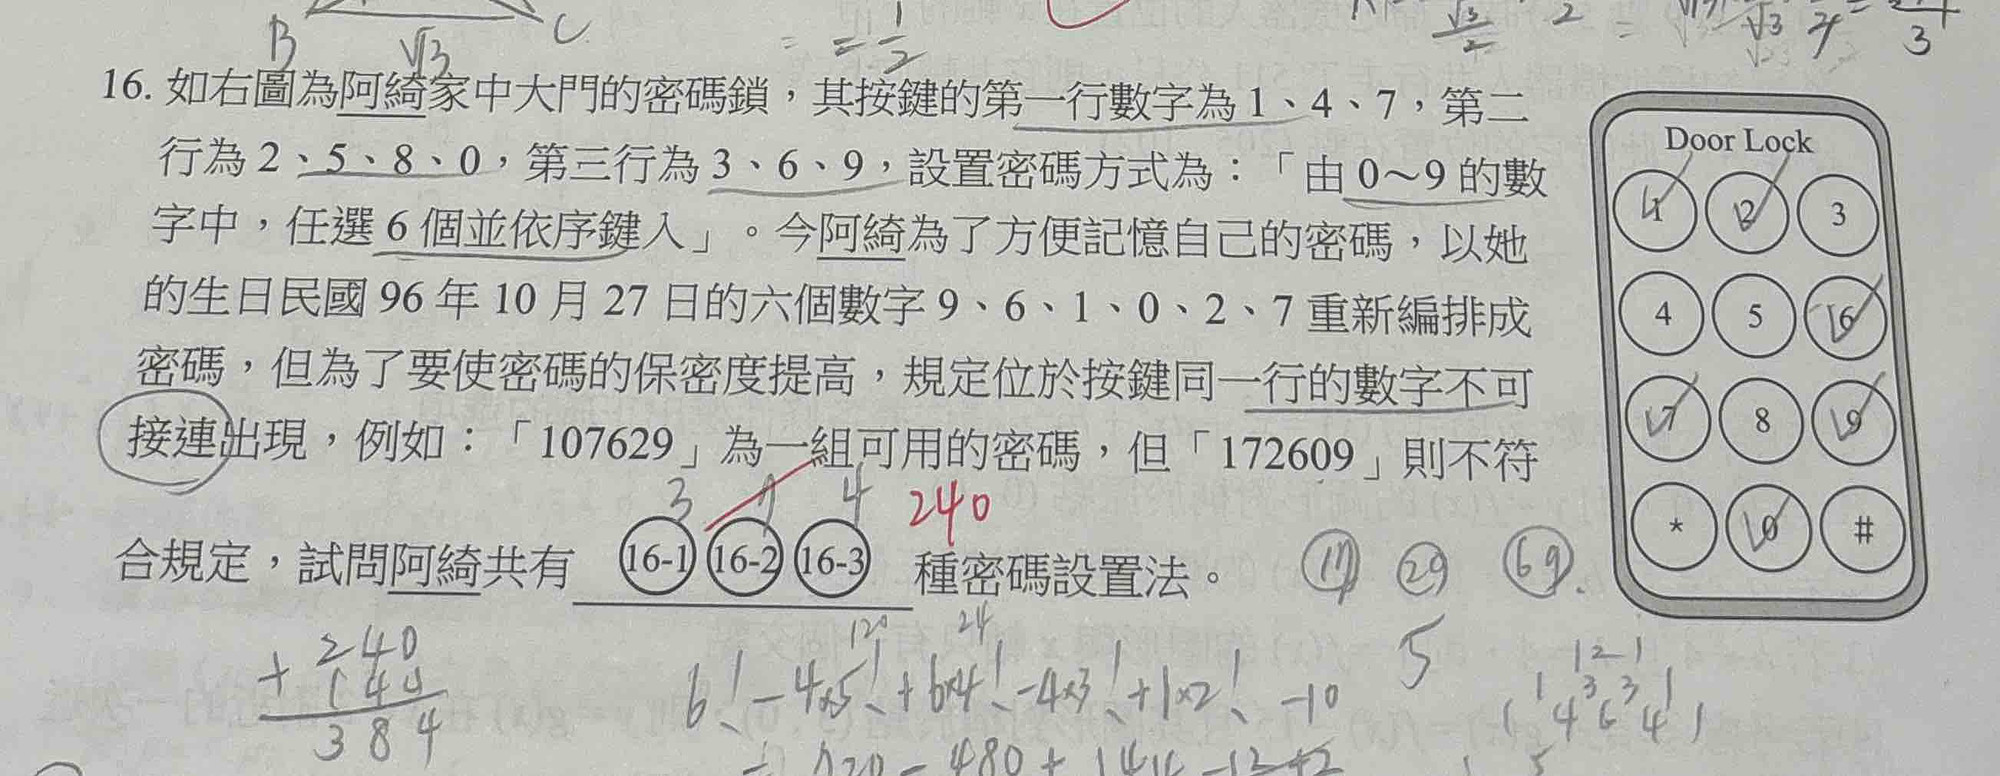 B √3 C
= 1/2
3
16. 如右圖為阿綺家中大門的密碼鎖，其按鍵的第一行數字為 1、4、7，第二
行為 2、5、8、0，第三行為 3、6、9，設置密碼方式為：「由 0～9 的數
字中，任選 6 個並依序鍵入」。今阿綺為了方便記憶自己的密碼，以她
的生日民國 96 年 10 月 27 日的六個數字 9、6、1、0、2、7 重新編排成
密碼，但為了要使密碼的保密度提高，規定位於按鍵同一行的數字不可
接連出現，例如：「107629」為一組可用的密碼，但「172609」則不符
3 4 240
合規定，試問阿綺共有 16-1 16-2 16-3 種密碼設置法。
69
Door Lock
1 2 3
4 5 6
7 8 9
* 0 #
240
+ 144
384
120 24
6! - 4×5! + 6×4! - 4×3! + 1×2! - 10
5
1 2 1
1 3 3 1
1 4 6 4 1
= 720 - 480 + 144